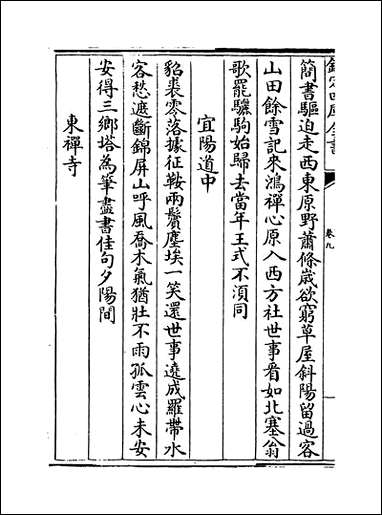 欽定四庫全書
卷九
簡書驅迫走西東原野蕭條嵗欲窮草屋斜陽留過客
山田餘雪記來鴻禪心原入西方社世事看如北塞翁
歌罷驪駒始歸去當年王式不湏同
宜陽道中
貂裘零落據征鞍兩鬢塵埃一笑還世事遶成羅帶水
客愁遮斷錦屏山呼風喬木氣猶壯不雨孤雲心未安
安得三鄉塔為筆盡書佳句夕陽間
東禪寺